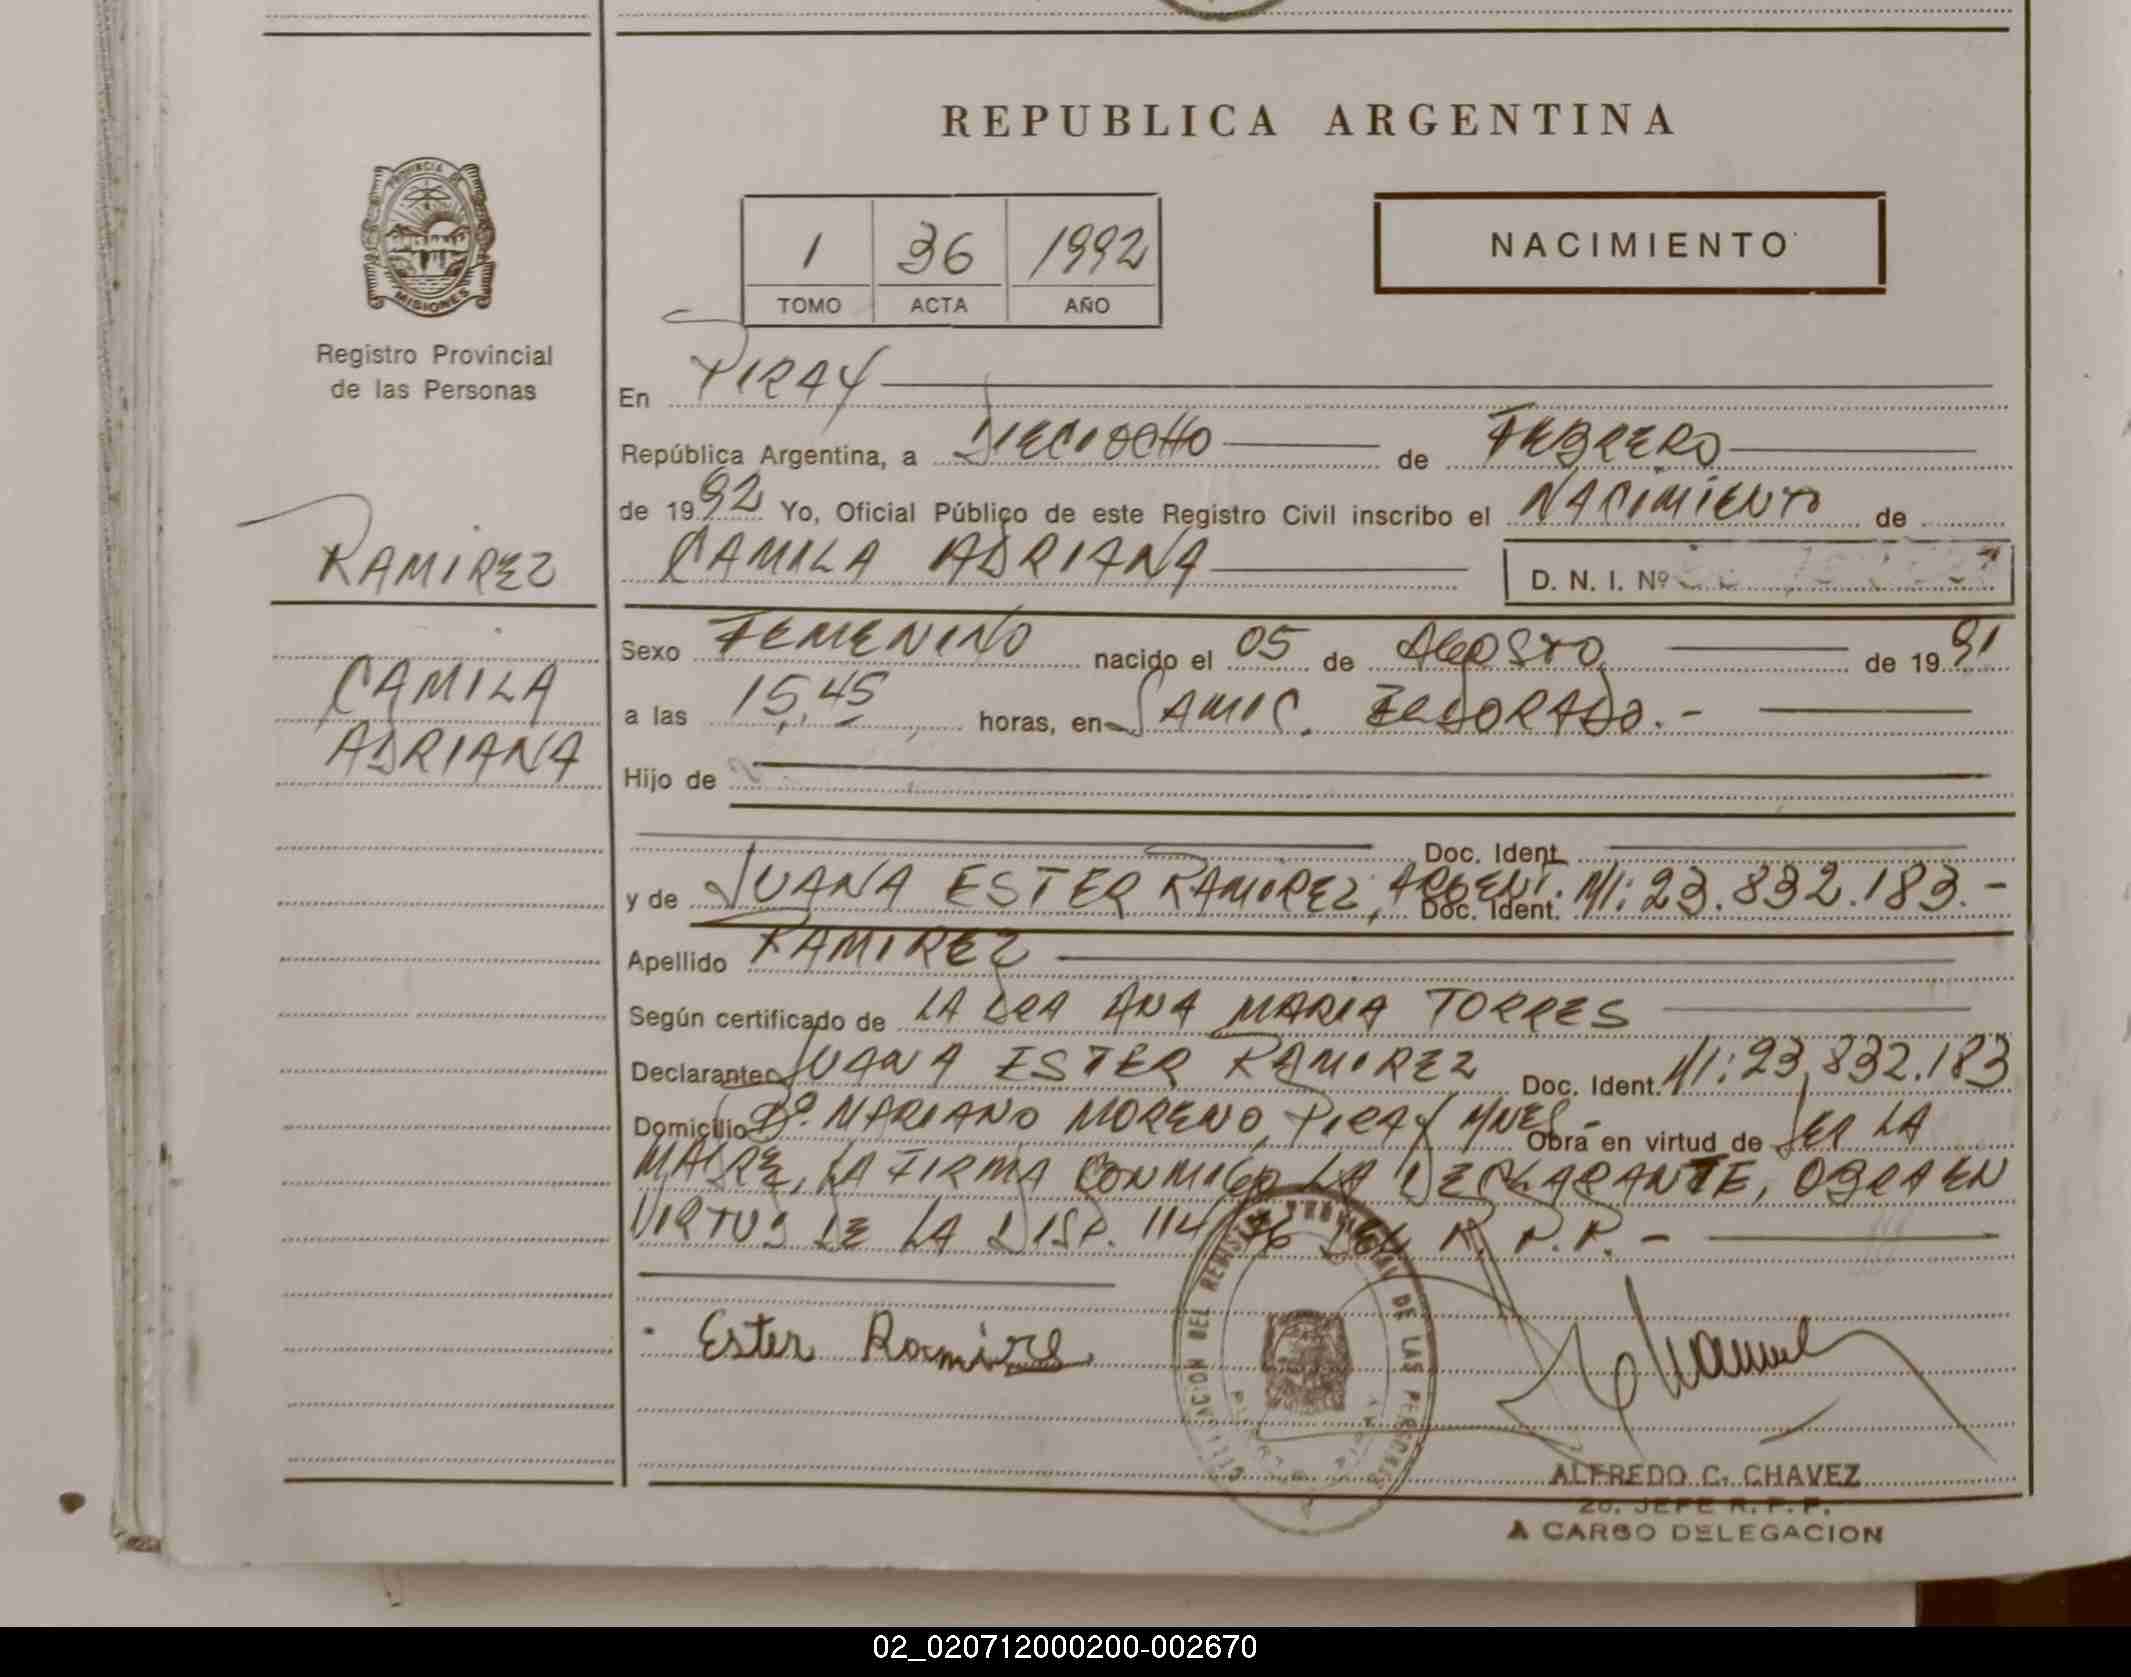 REPUBLICA ARGENTINA
PROVINCIA DE
MISIONES
Registro Provincial
de las Personas
1 36 1992
TOMO ACTA AÑO
NACIMIENTO
En PIRAY
República Argentina, a DIECIOCHO de FEBRERO
de 1992 Yo, Oficial Público de este Registro Civil inscribo el NACIMIENTO de
CAMILA ADRIANA D. N. I. Nº
RAMIREZ
CAMILA
ADRIANA
Sexo FEMENINO nacido el 05 de AGOSTO de 1991
a las 15,45 horas, en SAMIC. ELDORADO.-
Hijo de
Doc. Ident.
y de JUANA ESTER RAMIREZ, ARGENT. Doc. Ident. MI: 23.832.183.-
Apellido RAMIREZ
Según certificado de LA DRA ANA MARIA TORRES
Declarante JUANA ESTER RAMIREZ Doc. Ident. MI: 23,832.183
Domicilio Bº. MARIANO MORENO, PIRAY MNES- Obra en virtud de SER LA
MADRE, LA FIRMA CONMIGO LA DECLARANTE, OBRA EN
VIRTUD DE LA DISP. 114/86 DEL R.P.P.-
Ester Ramires
DEL REGISTRO PROVINCIAL DE LAS PERSONAS
ALFREDO C. CHAVEZ
2o. JEFE R. P. P.
A CARGO DELEGACION
02_020712000200-002670